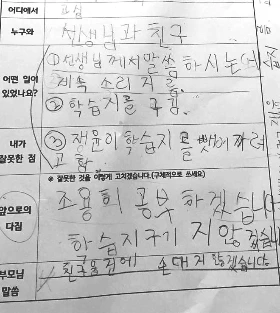 어디에서 교실
누구와 선생님과 친구
어떤 일이 있었나요?
①선생님께서 말씀 하시는데
계속 소리 지름
②학습지를 구김
내가 잘못한 점
③ 학습지를 뺏어 가려
고 함
※ 잘못한 것을 어떻게 고치겠습니까?(구체적으로 쓰세요)
앞으로의 다짐
조용히 공부 하겠습니
학습지구기 지 않겠습니
친구물건에 손대지않겠습니다
부모님 말씀